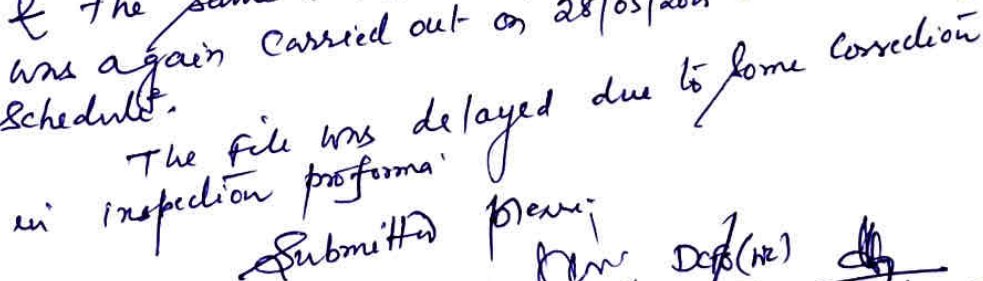 & The same
was again carried out on 28/05/201
schedule.
The file was delayed due to some correction
in inspection proforma
Submitted please